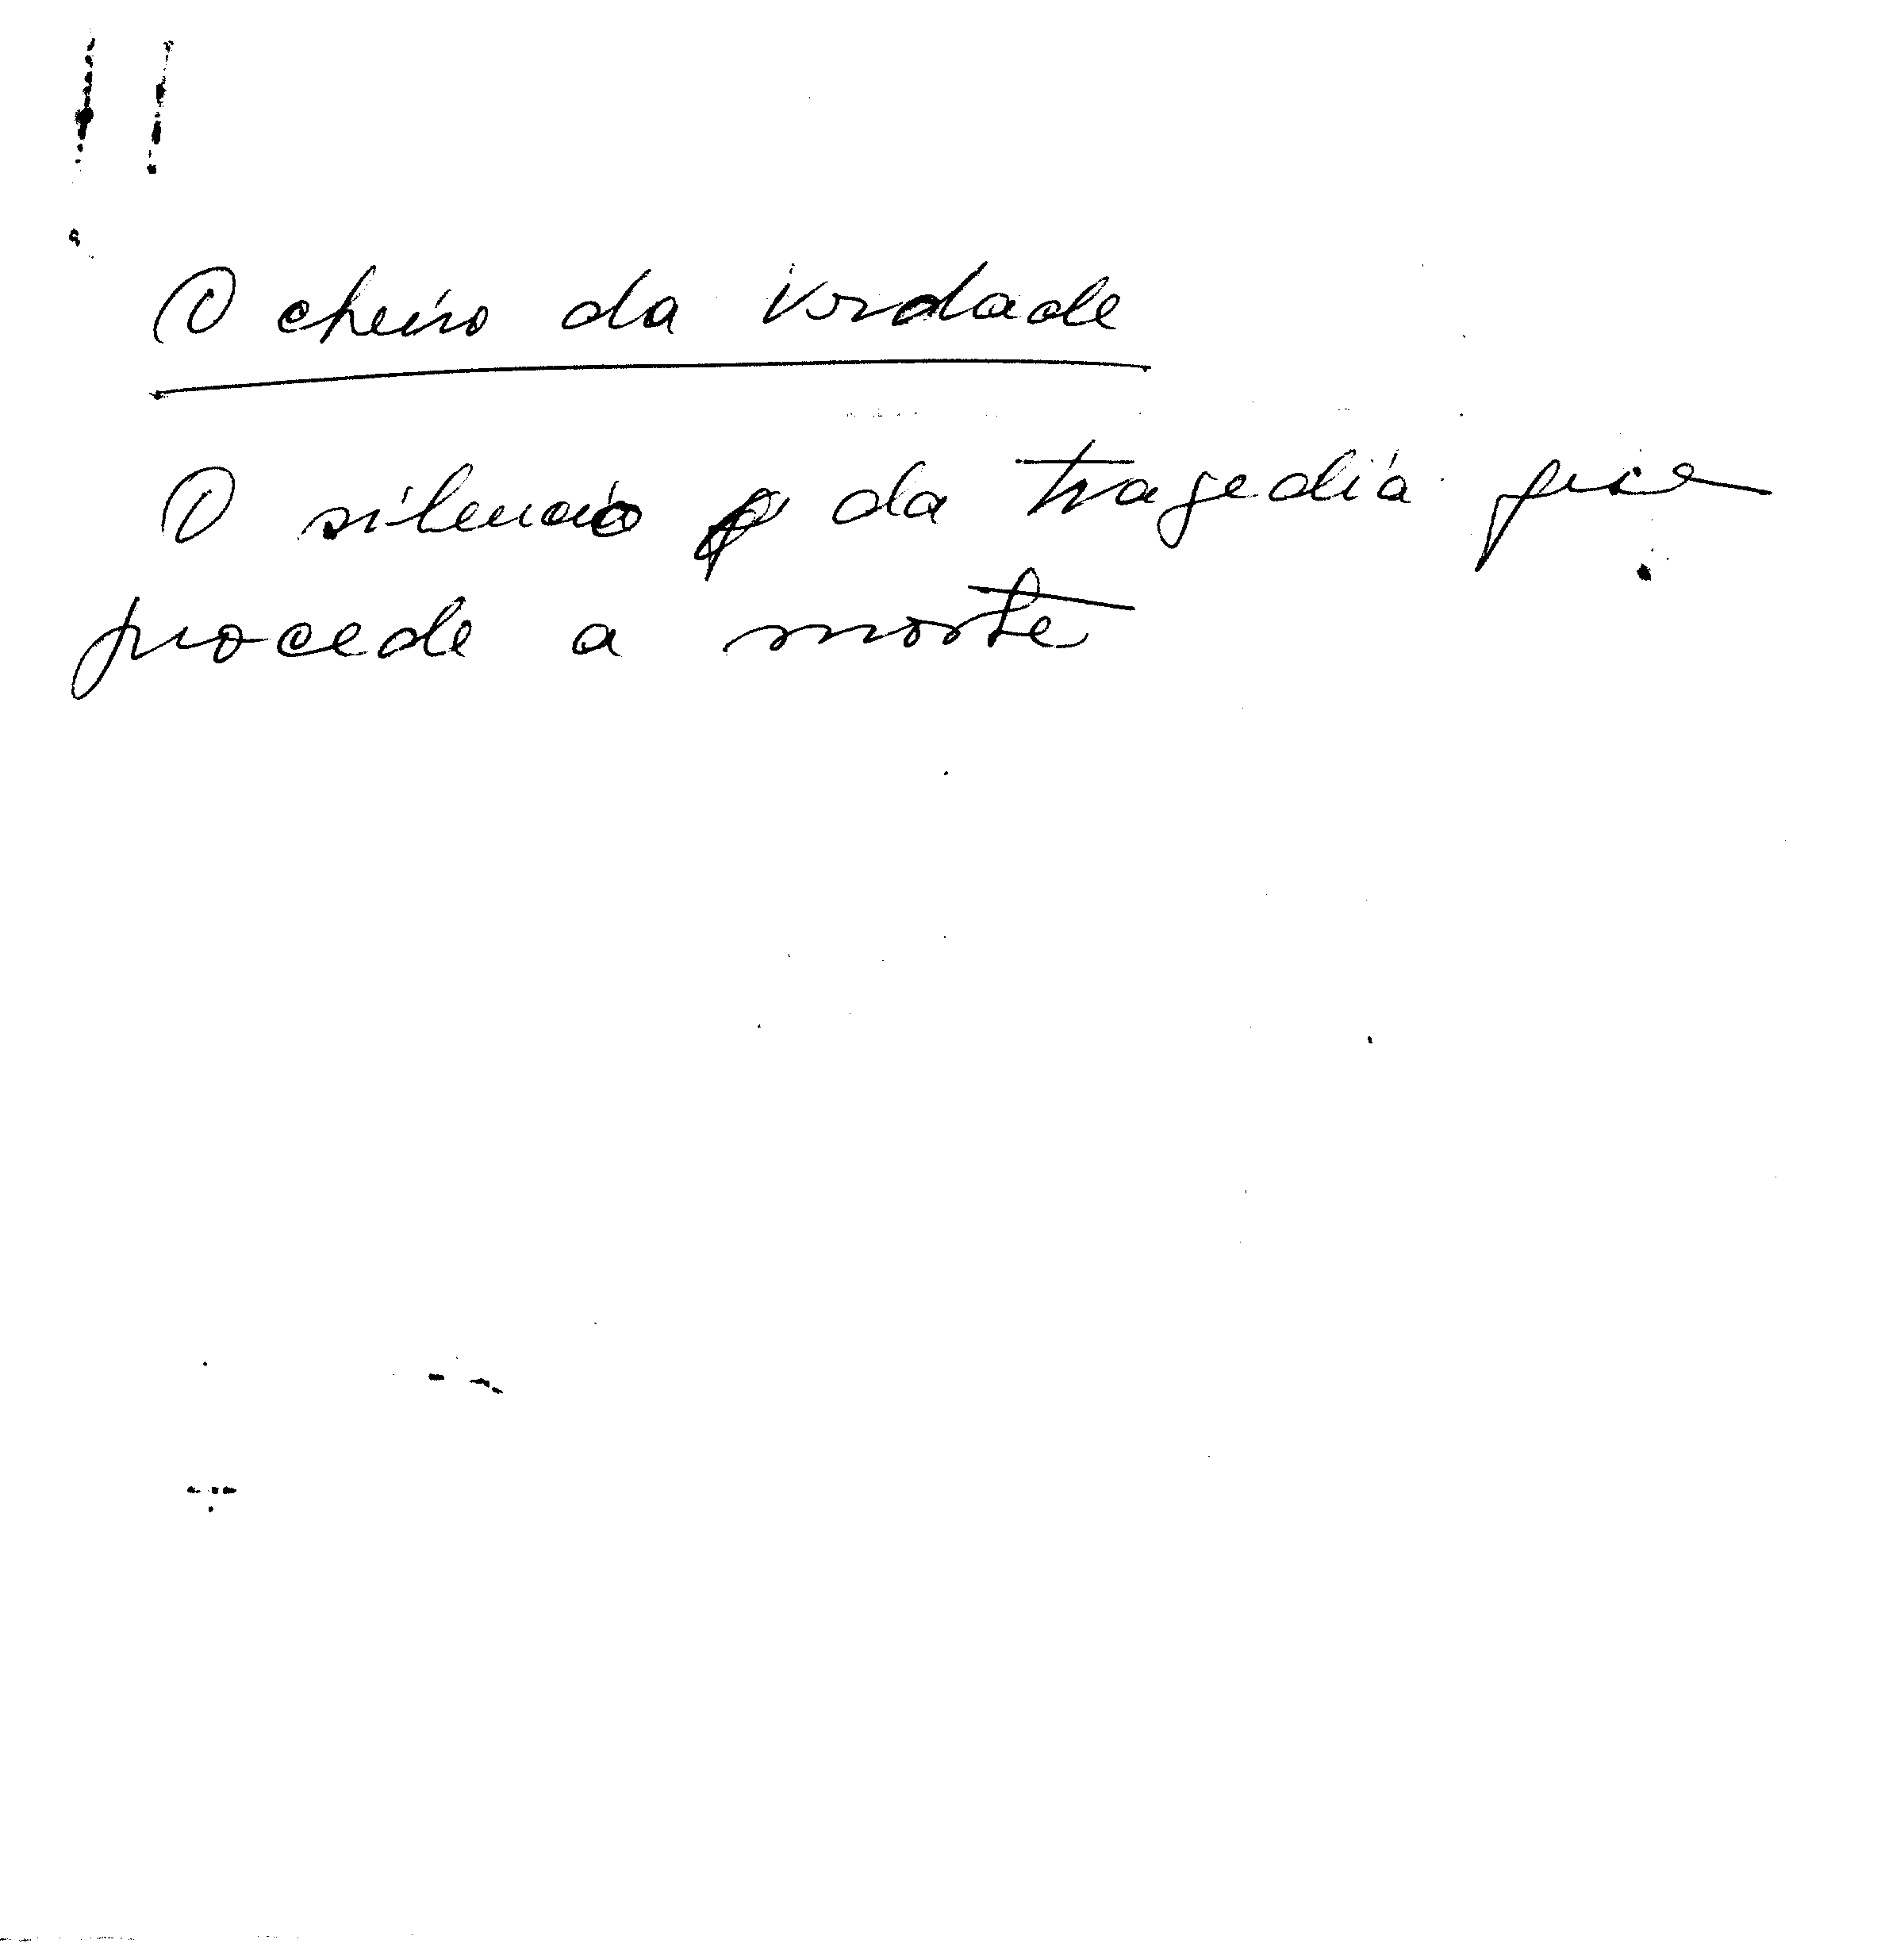 O cheiro da verdade
O silencio da tragedia que
procede a morte